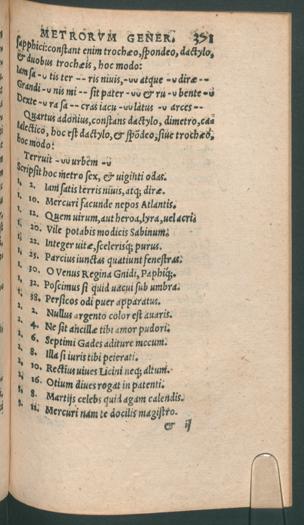 METRORVM GENER.
sapphici: constant enim trochæo, spondeo, dactylo,
& duobus trochæis, hoc modo:
Iam sa -ʋ tis ter -- ris niuis, -ʋʋ atque -ʋ diræ --
Grandi -ʋ nis mi -- sit pater -ʋʋ & ru -ʋ bente -ʋ
Dexte -ʋ ra sa -- cras iacu -ʋʋ latus -ʋ arces --
Quartus adonius, constans dactylo, dimetro, cata
talectico, hoc est dactylo, & spōdeo, siue trochæo,
hoc modo:
Terruit -ʋʋ urbem -ʋ
Scripsit hoc metro sex, & viginti odas.
1. 2. Iam satis terris niuis, atq; diræ.
1. 10. Mercuri facunde nepos Atlantis.
1. 12. Quem uirum, aut heroa, lyra, uel acri.
1. 20. Vile potabis modicis Sabinum.
1. 22. Integer uitæ, scelerisq; purus.
1. 25. Parcius iunctas quatiunt fenestras.
1. 30. O Venus Regina Gnidi, Paphiq;.
1. 32. Poscimus si quid uacui sub umbra.
1. 38. Persicos odi puer apparatus.
2. 2. Nullus argento color est auaris.
2. 4. Ne sit ancillæ tibi amor pudori.
2. 6. Septimi Gades aditure mecum.
2. 8. Illa si iuris tibi peierati.
2. 10. Rectius uiues Licini neq; altum.
2. 16. Otium diues rogat in patenti.
3. 8. Martijs celebs quid agam calendis.
3. 11. Mercuri nam te docilis magistro.
& ij